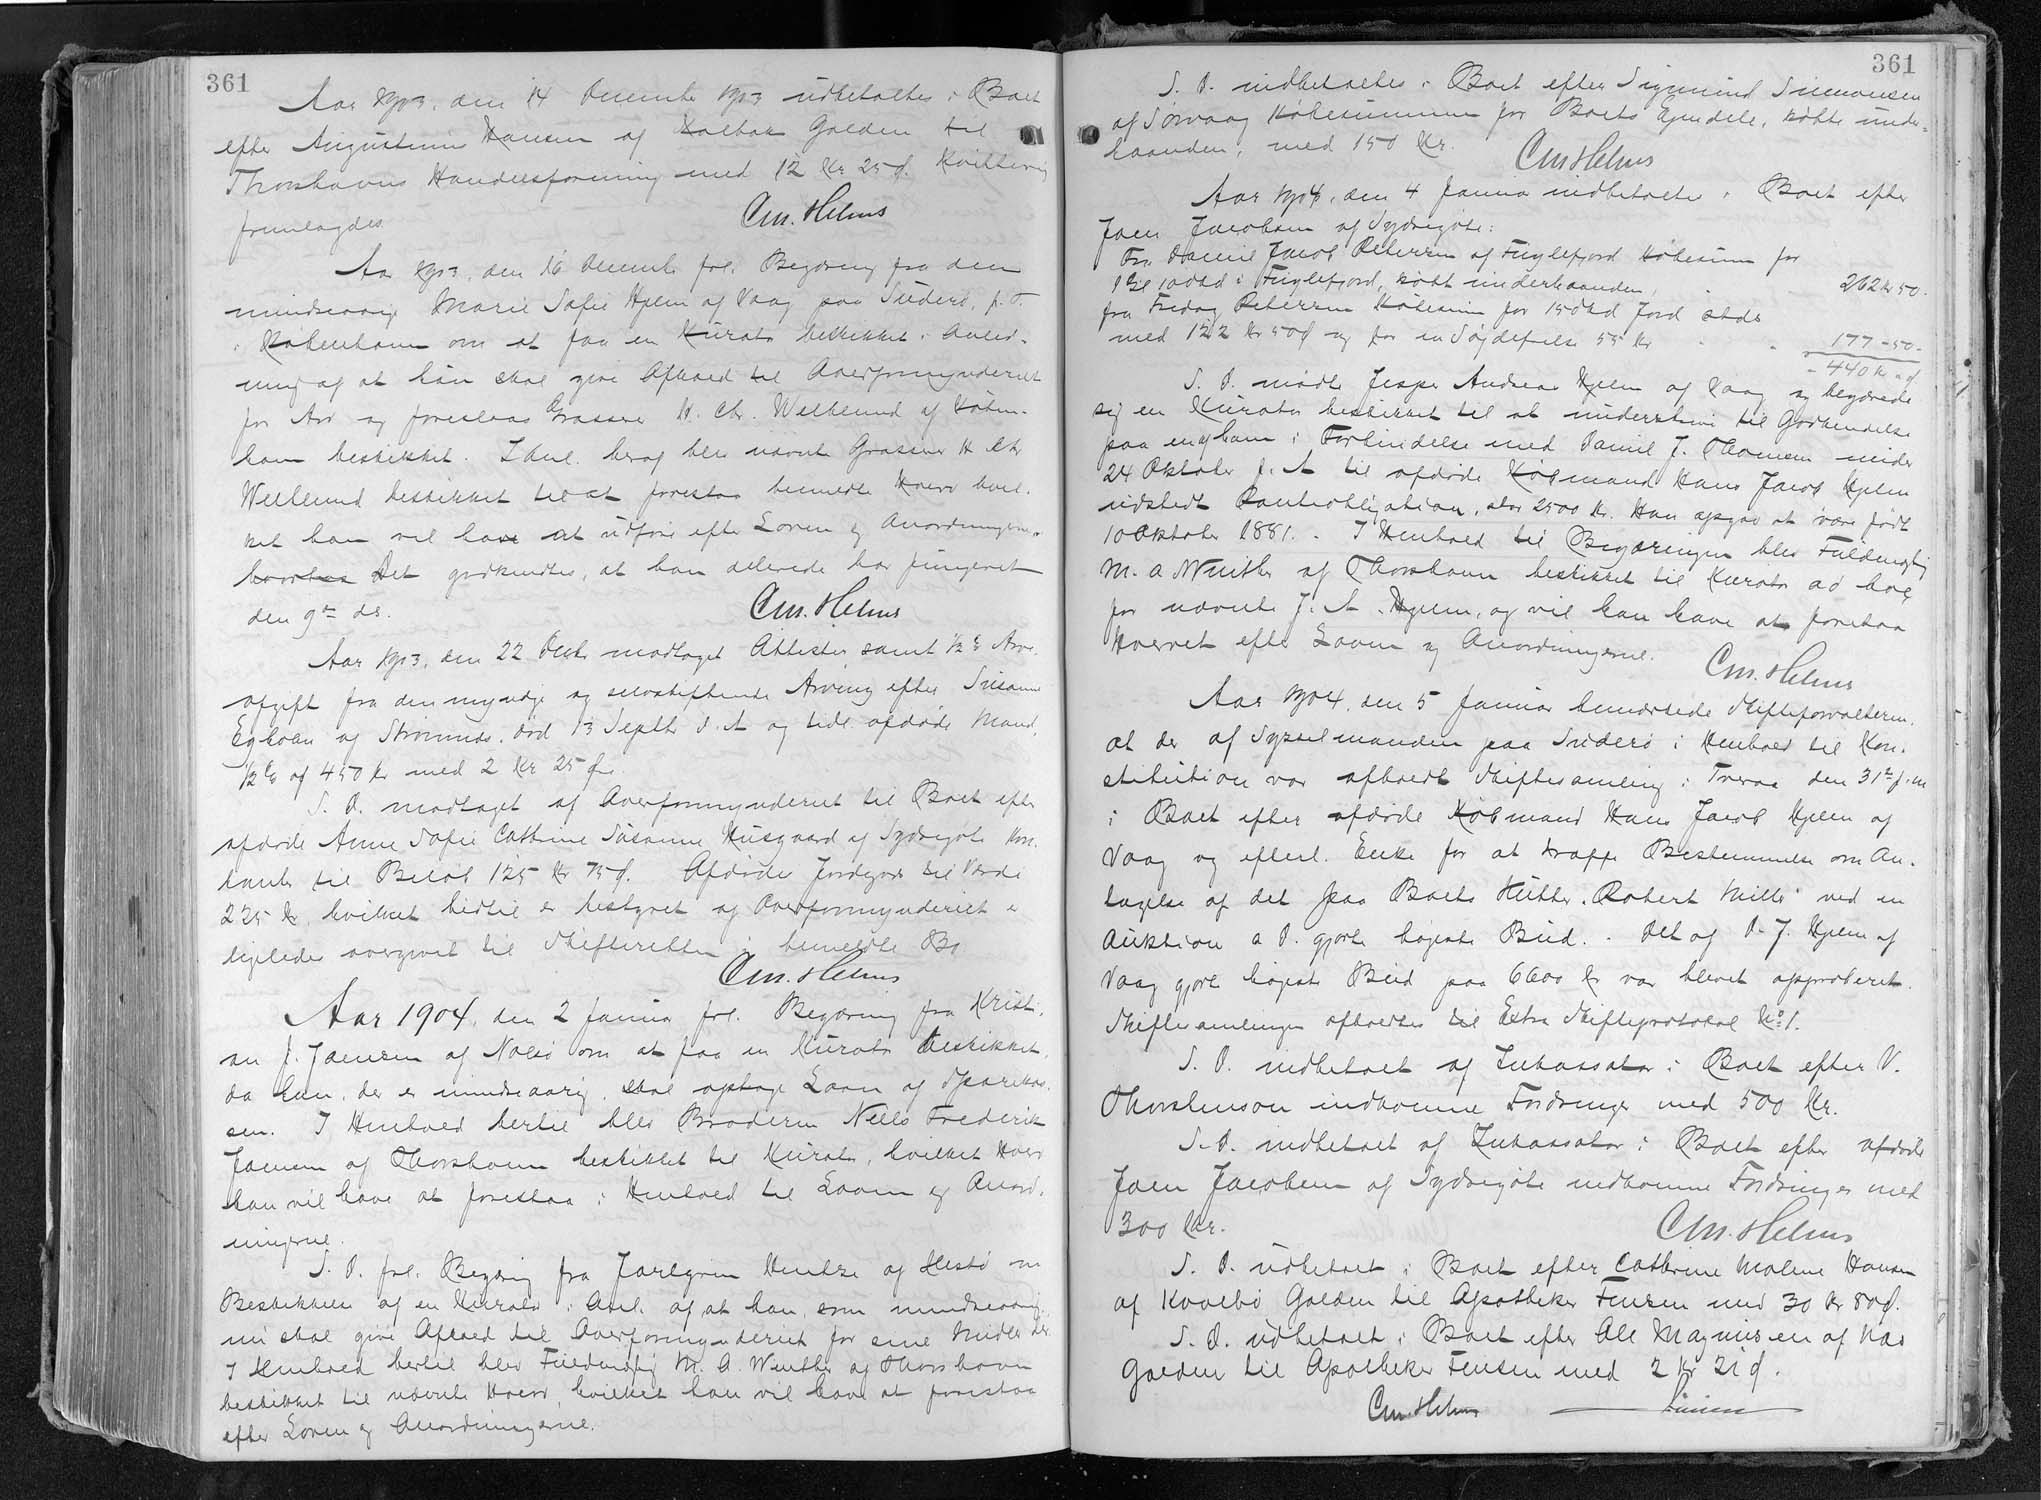 361
Aar 1903, den 14 Decembr 1903 udbetaltes i Boet
efter Augustinus Hansen af Kalbak Gælden til
Thorshavns Handelsforening med 12 Kr 25 Ø. Kvittering
fremlagdes
Cm. Helms
Aar 1903, den 16 Decembr frl. Begæring fra den
mindreaarige Marie Sofie Hjelm af Vaag paa Suderø, p.t.
i København om at faa en Kurator beskikket i Anled-
ning af at hun skal give Afkald til Overformynderiet
for Arv og foreslaas Grosserer H. Chr. Wellelund af Køben-
havn beskikket. I Anl. heraf blev nævnte Grosserer H Chr
Wellelund beskikket til at forestaa bemeldte Hverv hvil-
ket han vil have at udføre efter Loven og Anordningerne.
Det godkendtes, at han allerede har fungeret
den 9de ds.
Cm. Helms
Aar 1903, den 22 Decbr modtaget Attester samt ½ % Arve-
afgift fra den myndige og selvskiftende Arving efter Susanne
Egholm af Strømnæs, død 13 Septbr d. A og tidl. afdøde Mand,
½ % af 450 kr med 2 Kr 25 Øre.
S. D. modtaget af Overformynderiet til Boet efter
afdøde Anne Sofie Cathrine Susanne Husgaard af Sydregøte Kon-
tante til Beløb 125 Kr 75 Ø. Afdødes Jordgods til Værdi
225 Kr, hvilket hidtil er bestyret af Overformynderiet er
ligeledes overgivet til Skifteretten i bemeldte Bo
Cm. Helms
Aar 1904, den 2 Januar frl. Begæring fra Kristi-
an J. Joensen af Nolsø om at faa en Kurator beskikket,
da han, der er mindreaarig, skal optage Laan af Sparekas-
sen. I Henhold hertil blev Broderen Niels Frederik
Joensen af Thorshavn beskikket til Kurator, hvilket Hverv
han vil have at forestaa i Henhold til Loven og Anord-
ningerne.
S. D. frl. Begæring fra Jarlgrim Hentze af Hestø om
Beskikkelse af en Kurator i Anl. af at han, som mindreaarig,
nu skal give Afkald til Overformynderiet for sine Midler der.
I Henhold hertil blev Fuldmægtig M. A. Winther af Thorshavn
beskikket til nævnte Hverv, hvilket han vil have at forestaa
efter Loven og Anordningerne.
361
S. D. indbetaltes i Boet efter Sigmund Simonsen
af Sørvaag Købesummen for Boets Ejendele, købte under-
haanden, med 150 Kr.
Cm Helms
Aar 1904, den 4 Januar indbetaltes i Boet efter
Joen Jacobsen af Sydregøte:
Fra Daniel Jacob Petersen af Fuglefjord Købesum for
i Fuglefjord, købt underhaanden, 262 Kr 50.
fra Fredag Petersen Købesum for Jord sstds
med 122 Kr 50 Ø og for en 55 Kr . . 177 - 50 -
440 Kr " Ø
S. D. mødte Jesper Andreas Hjelm af Vaag og begærede
sig en Kurator beskikket til at underskrive til Godkendelse
paa en af ham i Forbindelse med Daniel J. Thomsen under
24 Oktober f. A til afdøde Købmand Hans Jacob Hjelm
udstedt Panteobligation, stor 2500 Kr. Han opgav at være født
10 Oktober 1881. - I Henhold til Begæringen blev Fuldmægtig
M. A Winther af Thorshavn beskikket til Kurator ad hoc
for nævnte J. A. Hjelm, og vil han have at forestaa
Hvervet efter Loven og Anordningerne.
Cm. Helms
Aar 1904, den 5 Januar bemærkede Skifteforvalteren,
at der af Sysselmanden paa Suderø i Henhold til Kon-
stitution var afholdt Skiftesamling i Tveraa den 31te f. m
i Boet efter afdøde Købmand Hans Jacob Hjelm af
Vaag og efterl. Enke for at træffe Bestemmelse om An-
tagelse af det paa Boets Kutter "Robert Miller" ved en
Auktion s. D. gjorte højeste Bud. - Det af D. J. Hjelm af
Vaag gjorte højeste Bud paa 6600 Kr var blevet approberet.
Skiftesamlingen afholdtes til Extra Skifteprotokol No 1.
S. D. indbetalt af Inkassator i Boet efter V.
Thorstenson indkomne Fordringer med 500 Kr.
S. D. indbetalt af Inkassator i Boet efter afdøde
Joen Jacobsen af Sydregøte indkomne Fordringer med
300 Kr.
Cm. Helms
S. D. udbetalt i Boet efter Cathrine Malene Hansen
af Kvalbø Gælden til Apotheker Fensen med 30 Kr 80 Ø.
S. D. udbetalt i Boet efter Ole Magnussen af Næs
Gælden til Apotheker Fensen med 2 Kr 21 Ø.
Cm. Helms